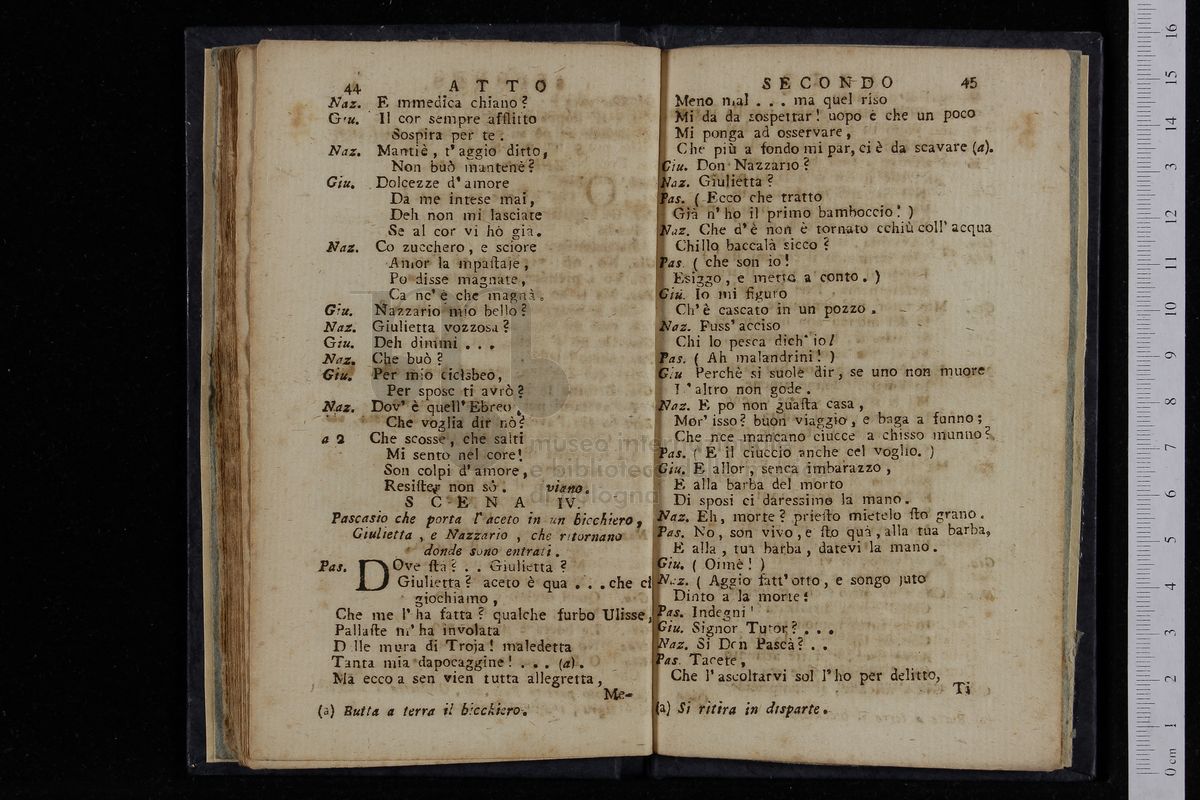 44 ATTO
Naz. E mmedica chiano?
Giu. Il cor sempre afflitto
Sospira per te.
Naz. Mantiè, t' aggio ditto,
Non buò mantenè?
Giu. Dolcezze d' amore
Da me intese mai,
Deh non mi lasciate
Se al cor vi hò gia.
Naz. Co zucchero, e sciore
Amor la mpastaje,
Po disse magnate,
Ca nc' è che magnà.
Giu. Nazzario mio bello?
Naz. Giulietta vozzosa?
Giu. Deh dimmi . . .
Naz. Che buò?
Giu. Per mio cicisbeo,
Per sposo ti avrò?
Naz. Dov' è quell' Ebreo,
Che voglia dir nò?
a 2 Che scosse, che salti
Mi sento nel core!
Son colpi d' amore,
Resister non sò. viano.
SCENA IV.
Pascasio che porta l' aceto in un bicchiero,
Giulietta, e Nazzario, che ritornano
donde sono entrati.
Pas. DOve sta? . . Giulietta?
Giulietta? aceto è qua . . . che ci
giochiamo,
Che me l' ha fatta? qualche furbo Ulisse,
Pallaste m' ha involata
D lle mura di Troja! maledetta
Tanta mia dapocaggine! . . . (a).
Ma ecco a sen vien tutta allegretta,
Me-
(a) Butta a terra il bicchiero.
SECONDO 45
Meno mal . . . ma quel riso
Mi da da sospettar! uopo è che un poco
Mi ponga ad osservare,
Che più a fondo mi par, ci è da scavare (a).
Giu. Don Nazzario?
Naz. Giulietta?
Pas. ( Ecco che tratto
Già n' ho il primo bamboccio! )
Naz. Che d' è non è tornato cchiù coll' acqua
Chillo baccalà sicco?
Pas. ( che son io!
Esiggo, e metto a conto. )
Giu. Io mi figuro
Ch' è cascato in un pozzo.
Naz. Fuss' acciso
Chi lo pesca dich' io!
Pas. ( Ah malandrini! )
Giu Perchè si suole dir, se uno non muore
L' altro non gode.
Naz. E pò non guasta casa,
Mor' isso? buon viaggio, e baga a funno;
Che nce mancano ciucce a chisso munno?
Pas. ( E il ciuccio anche cel voglio. )
Giu. E allor, senca imbarazzo,
E alla barba del morto
Di sposi ci daressimo la mano.
Naz. Eh, morte? priesto mietelo sto grano.
Pas. No, son vivo, e sto quà, alla tua barba,
E alla, tua barba, datevi la mano.
Giu. ( Oimè! )
Naz. ( Aggio fatt' otto, e songo juto
Dinto a la morte!
Pas. Indegni!
Giu. Signor Tutor? . . .
Naz. Si Don Pascà? . .
Pas. Tacete,
Che l' ascoltarvi sol l' ho per delitto,
Ti
(a) Si ritira in disparte.
museo inter
e bibliotec
di bologna
0 cm 1 2 3 4 5 6 7 8 9 10 11 12 13 14 15 16